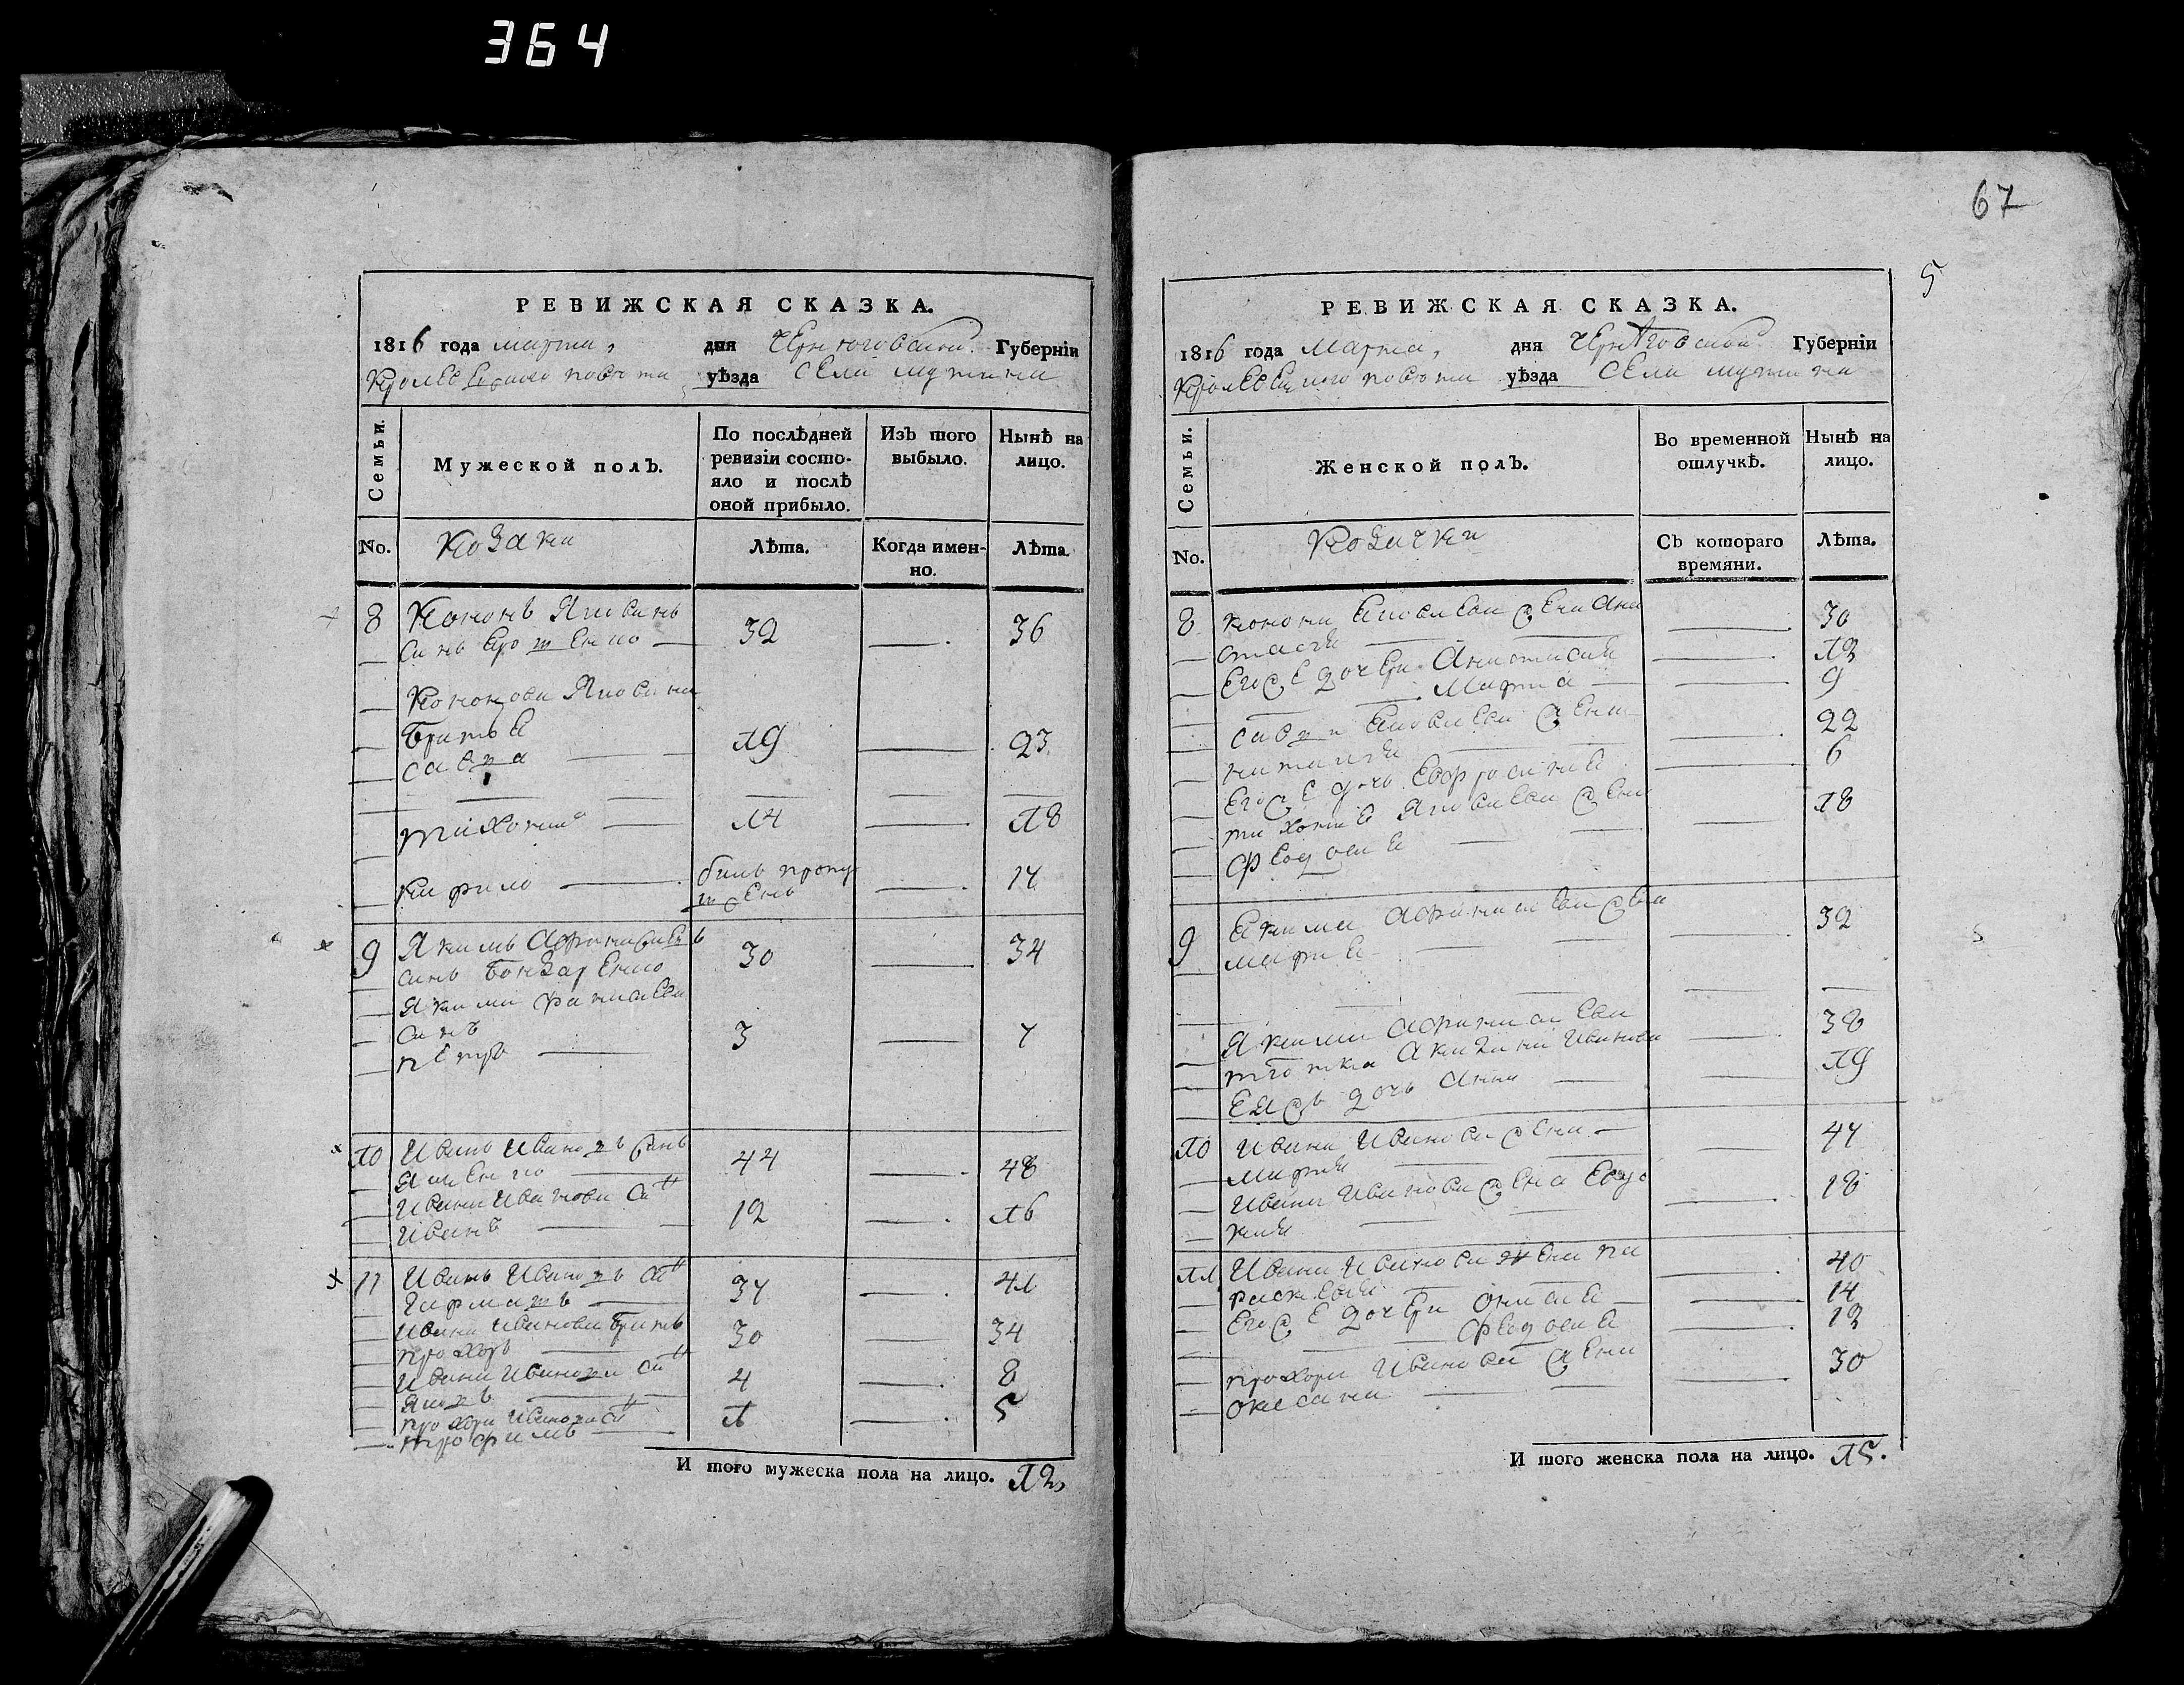 364
67
5
РЕВИЖСКАЯ СКАЗКА.
1816 года марта, дня Черниговской Губерніи
Кролевецкого повѣта уѣзда села Мутина
Семьи.
Мужеской полЪ.
По послѣдней ревизіи состояло и послѣ оной прибыло.
ИзЪ того выбыло.
НынѣЪ на лицо.
No.
Козаки
Лѣта.
Когда именно.
Лѣта.
8 Кононъ Яковинъ
синъ 32 — 36
Кононови Яковини
братья
савка 19 — 23
тихонъ 14 — 18
кирило билъ пропущенъ — 14
9 Якимъ Афанасиевъ
синъ Бондаренко 30 — 34
Якима Фанасиева
синъ
петръ 3 — 7
10 Иванъ Ивановъ синъ
Яценко 44 — 48
Ивана Иванова синъ
Иванъ 12 — 16
11 Иванъ Ивановъ синъ
37 — 41
Ивана Иванова братъ
прохоръ 30 — 34
Ивана Иванова синъ
Яковъ 4 — 8
прохора Иванова синъ
трофимъ 1 — 5
И того мужеска пола на лицо. 12,
РЕВИЖСКАЯ СКАЗКА.
1816 года Марта, дня Черниговской Губерніи
Кролевецкого повѣта уѣзда Села Мутина
Семьи.
Женской полЪ.
Во временной отлучкѣ.
Нынѣ на лицо.
No.
Козачки
СЪ котораго времяни.
Лѣта.
8 конона Яковлева жена Ана
стасія — 30
Его же дочери Анастасия — 12
Марфа — 9
савки Яковлева жена
наталия — 22
Его же дочь Евфросиния — 6
тихона Яковлева жена
Феодосия — 18
9 Якима Афанасиева жена
мария — 32
Якима Афанасиева
тіотка Акилина Иванова — 38
Ея жъ дочь Анна — 19
10 Ивана Иванова жена
марія — 47
Ивана Иванова жена Евдо
кия — 18
11 Ивана Иванова жена па
раскевия — 40
Его же дочери Анасия — 14
Феодосия — 12
прохора Иванова жена
оксана — 30
И того женска пола на лицо. 15.